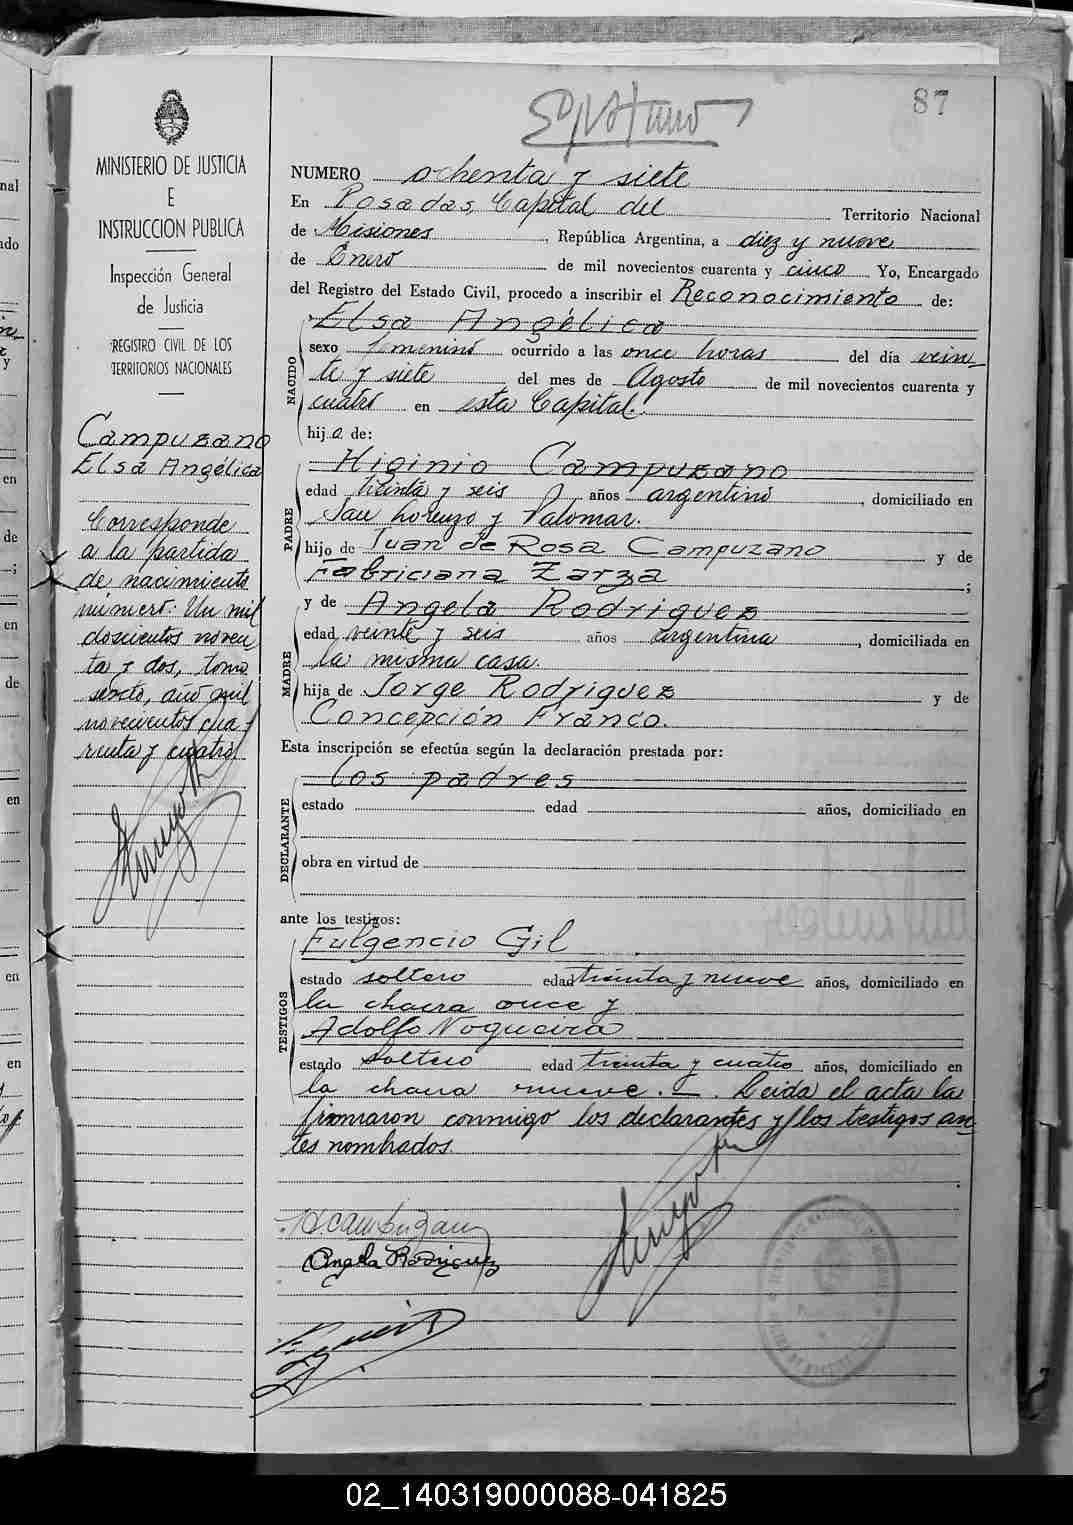 87
MINISTERIO DE JUSTICIA
E
INSTRUCCION PUBLICA
Inspección General
de Justicia
REGISTRO CIVIL DE LOS
TERRITORIOS NACIONALES
Campuzano
Elsa Angélica
Corresponde
a la partida
de nacimiento
número: Un mil
doscientos noven
ta y dos, tomo
sexto, año mil
novecientos cua-
renta y cuatro
NUMERO ochenta y siete
En Posadas, Capital del Territorio Nacional
de Misiones, República Argentina, a diez y nueve
de Enero de mil novecientos cuarenta y cinco Yo, Encargado
del Registro del Estado Civil, procedo a inscribir el Reconocimiento de:
NACIDO
Elsa Angélica
sexo femenino ocurrido a las once horas del día vein-
te y siete del mes de Agosto de mil novecientos cuarenta y
cuatro en esta Capital.
hija de:
PADRE
Higinio Campuzano
edad treinta y seis años argentino, domiciliado en
San Lorenzo y Palomar.
hijo de Juan de Rosa Campuzano y de
Fabriciana Zarza;
MADRE
y de Angela Rodriguez
edad veinte y seis años argentina, domiciliada en
la misma casa.
hija de Jorge Rodriguez y de
Concepción Franco.
Esta inscripción se efectúa según la declaración prestada por:
DECLARANTE
los padres
estado edad años, domiciliado en
obra en virtud de
ante los testigos:
TESTIGOS
Fulgencio Gil
estado soltero edad treinta y nueve años, domiciliado en
la chacra once y
Adolfo Nogueira
estado soltero edad treinta y cuatro años, domiciliado en
la chacra nueve. Leida el acta la
firmaron conmigo los declarantes y los testigos an-
tes nombrados.
H. Campuzano
Angela Rodriguez
02_140319000088-041825